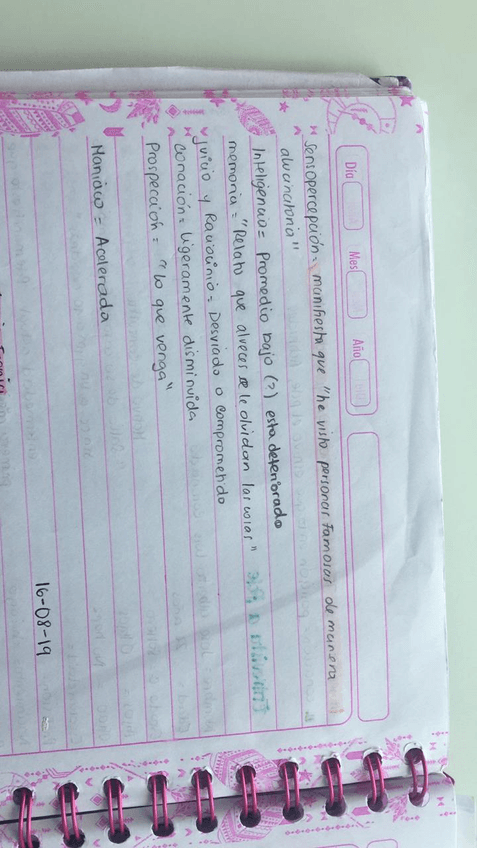 Día Mes Año
Sensopercepción: manifiesta que "he visto personas famosas de manera
alucinatoria"
Inteligencia= Promedio bajo (?) esta deteriorado
memoria= "Relato que alveces se le olvidan las cosas"
Juicio y Raciocinio= Desviado o comprometido
Conación= Ligeramente disminuida
Prospección= "lo que venga"
Maníaco= Acelerada
16-08-19